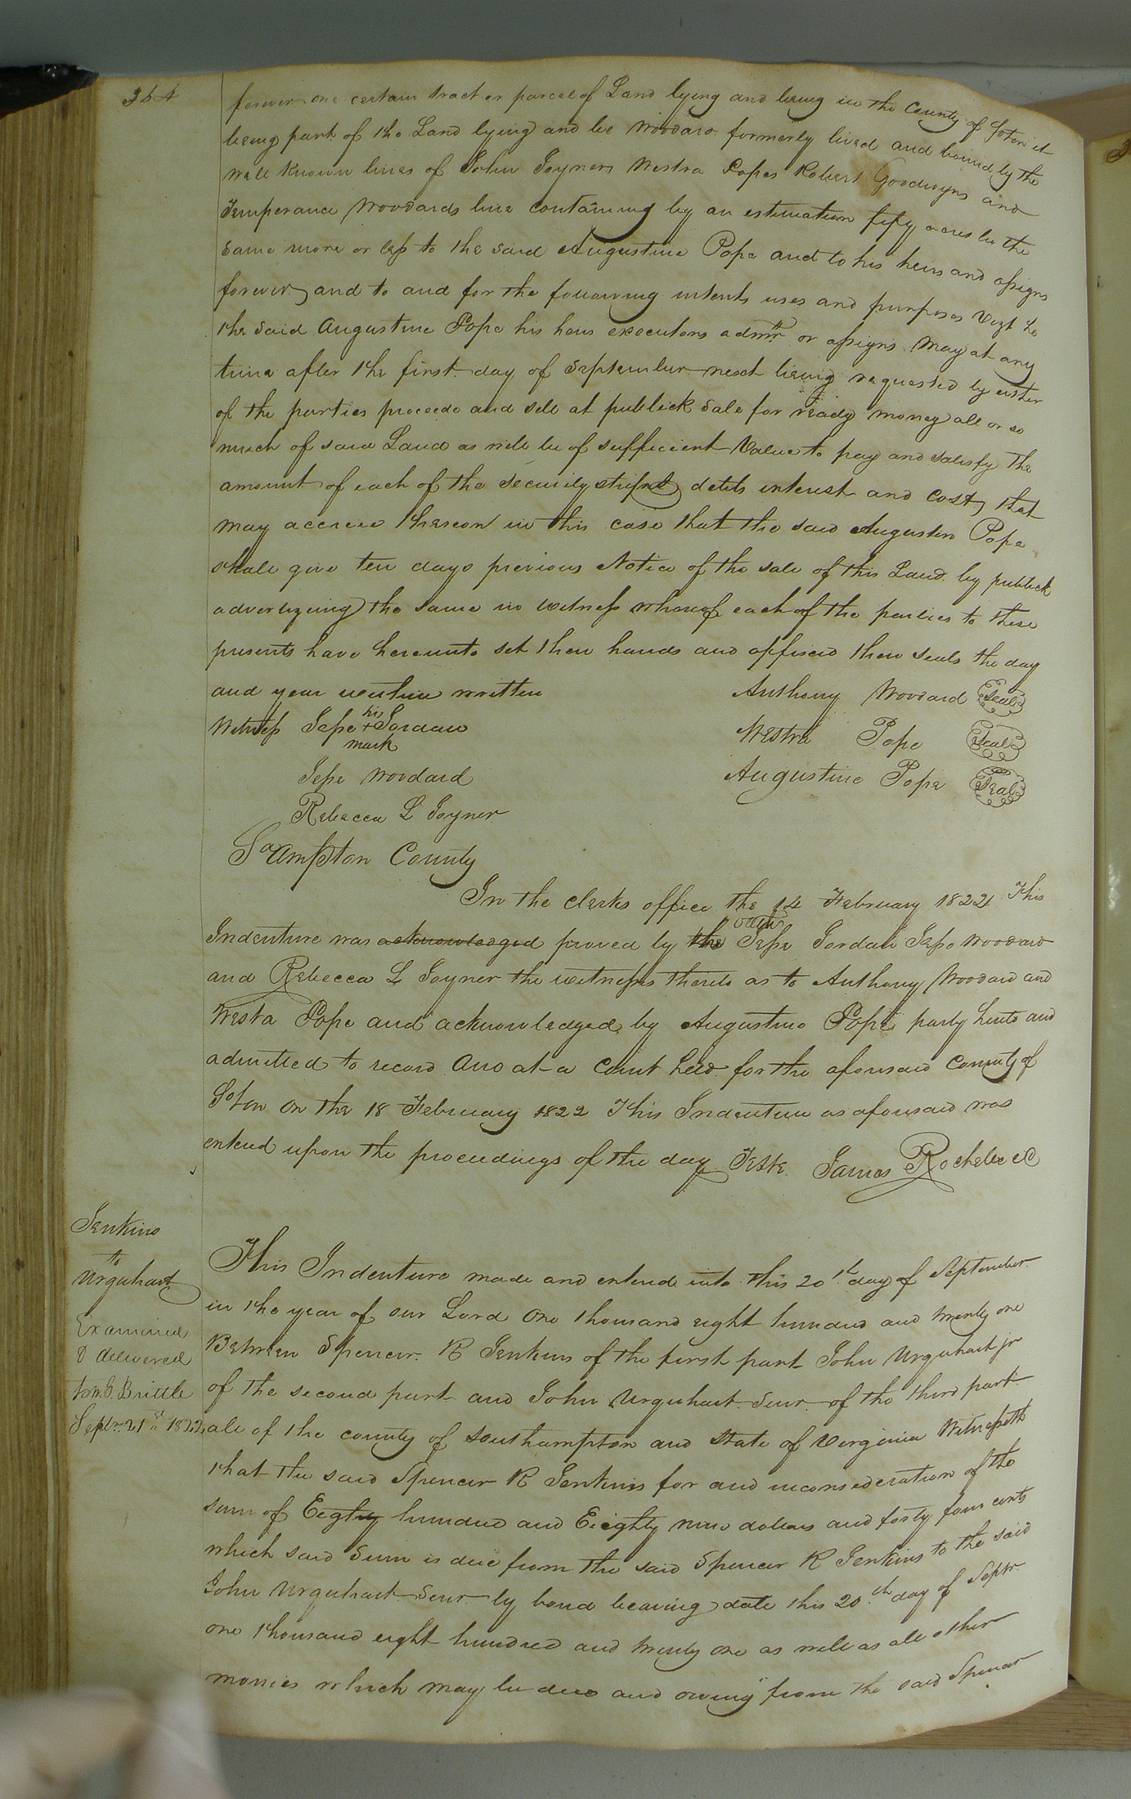 364
forever one certain tract or parcel of Land lying and being in the County of Soton it
being part of the Land lying and be Woodard formerly lived and bound by the
well known lines of John Joyners Westra Popes Robert Goodwyns and
Temperance Woodards line containing by an estimation fifty acres be the
same more or less to the said Augustine Pope and to his heirs and assigns
forever and to and for the following intents uses and purposes Vizt he
the said Augustine Pope his heirs executors admrs or assigns may at any
time after the first day of September next being requested by either
of the parties proceede and sell at publick sale for ready money all or so
much of said Land as will be of sufficient Value to pay and satisfy the
amount of each of the debts interest and cost, that
may accrue thereon in this case that the said Augusten Pope
shall give ten days previous Notice of the sale of this Land by publick
advertizeing the same in witness whereof each of the parties to these
presents have hereunto set their hands and affixed their seals the day
and year within written
Anthony Woodard Seal
Witness Jesse his + mark Jordan
Westra Pope Seal
Jesse Woodard
Augustine Pope Seal
Rebecca L Joyner
So ampton County
In the clerks office the 14 February 1822 This
Indenture was acknowledged proved by the oath Jesse Jordan Jesse Woodard
and Rebecca L Joyner the witnesses thereto as to Anthony Woodard and
Westa Pope and acknowledged by Augustine Pope party hereto and
admitted to record And at a Court held for the aforesaid County of
Soton on the 18 February 1822 This Indenture as aforesaid was
entered upon the proceedings of the day Teste James Rochelle CC
Jenkins
to
Urquhart
Examined
& delivered
to Brittle
Septr 21st 1822
This Indenture made and entered into this 20th day of September
in the year of our Lord One thousand eight hundred and twenty one
Between Spencer R Jenkins of the first part John Urquhart jr
of the second part and John Urquhart Senr of the third part
all of the county of Southampton and State of Virginia Witnesseth
that the said Spencer R Jenkins for and inconsideration of the
sum of Eighty hundred and Eeighty nine dollars and forty four cents
which said Sum is due from the said Spencer R Jenkins to the said
John Urquhart Senr by bond bearing date this 20th day of Septr
one thousand eight hundred and twenty one as well as all other
monies which may be due and owing from the said Spencer